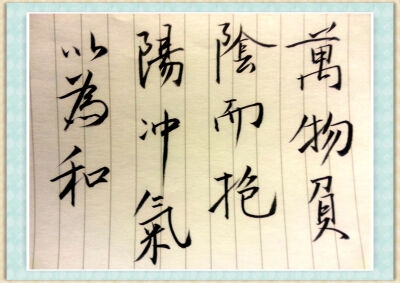 萬物負
陰而抱
陽沖氣
以為和